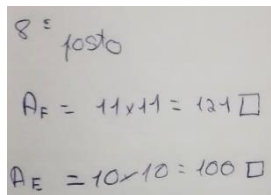 8º
posto
AF = 11x11 = 121 □
AE = 10x10 = 100 □